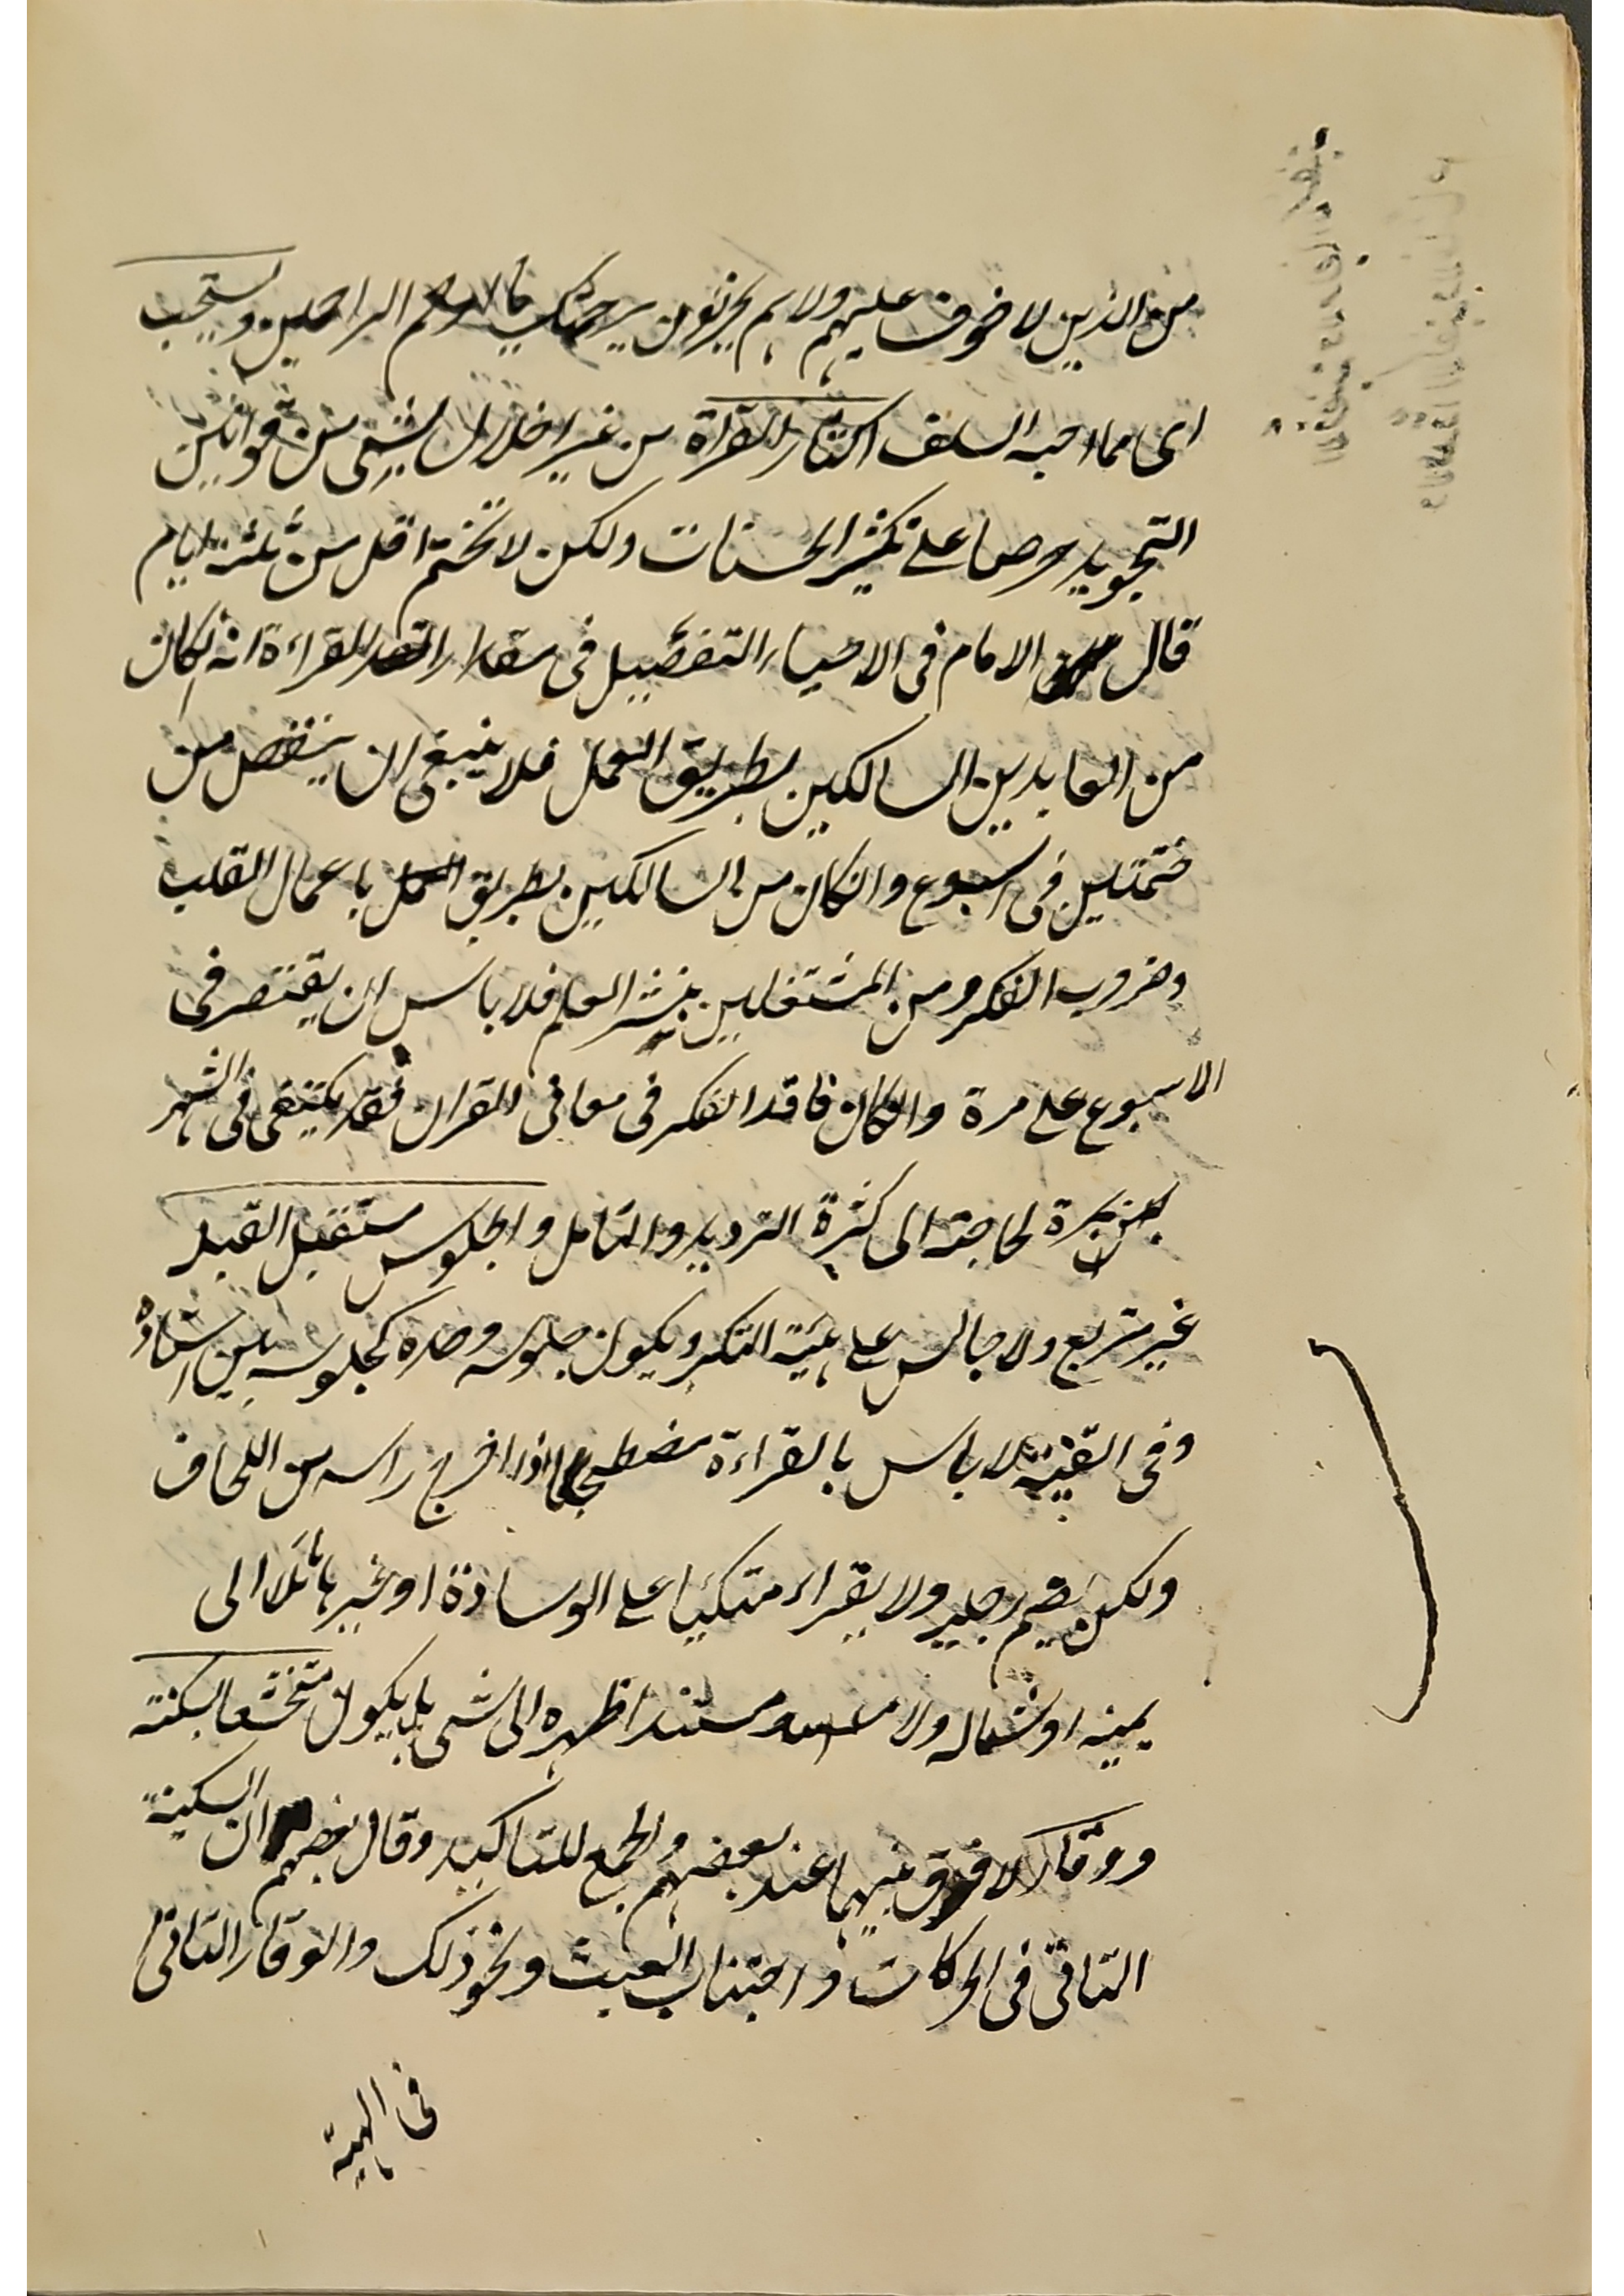 من الذين لا خوف عليهم ولا هم يحزنون برحمتك يا ارحم الراحمين ويستحب
اى مما احبه السلف اكثار القراة من غير اخلال بشىء من قوانين
التجويد حرصا على تكثير الحسنات ولكن لا تختم اقل من ثلثة ايام
قال الامام فى الاحياء التفصيل فى مقدار القراءة انه انكان
من العابدين السالكين بطريق العمل فلا ينبغى ان ينقص من
ختمتين فى اسبوع وانكان من السالكين بطريق باعمال القلب
وضروب الفكر ومن المشتغلين بنشر العلم فلا باس ان يقتصر فى
الاسبوع على مرة وانكان فاقد الفكر فى معانى القران فقد يكتفى فى الشهر
بمرة لحاجته الى كثرة الترديد والتامل والجلوس مستقبل القبلة
غير متربع ولا جالس على هيئة التكبر ويكون جلوسه وحده كجلوسه بين استاذه
وفى القنية لا باس بالقراءة مضطجعا اذا اخرج راسه من اللحاف
ولكن يضم رجليه ولا يقراء متكيا على الوسادة او غيرها مائلا الى
يمينه او شماله ولا مستندا ظهره الى شىء بل يكون متخشعا بسكينة
ووقار لا فرق بينهما عند بعضهم والجمع للتاكيد وقال بعضهم ان السكينة
التانى فى الحركات واجتناب العبث ونحو ذلك والوقار التانى
فى الهيئة